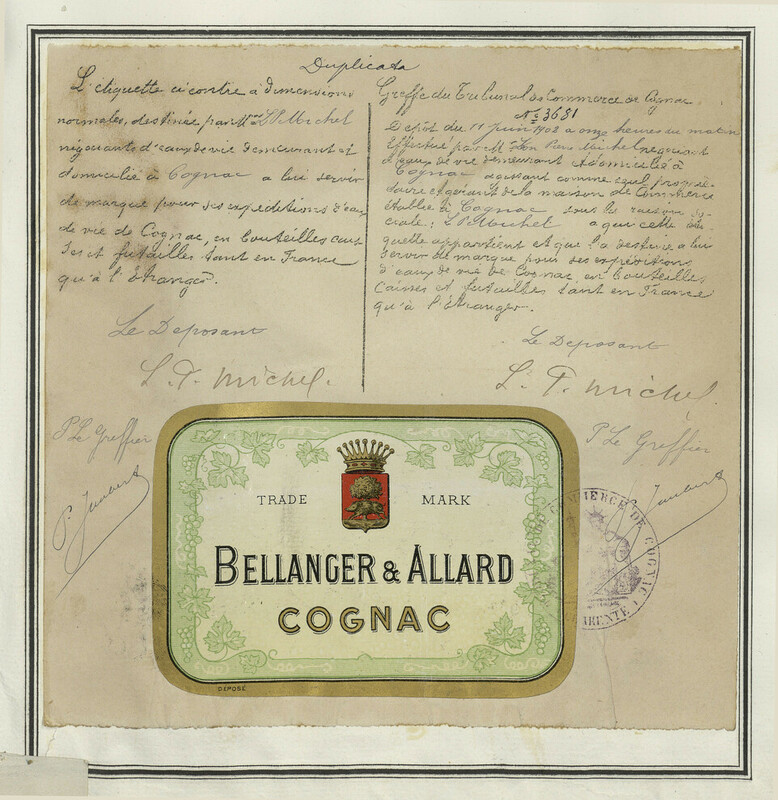 Duplicata
L'étiquette ci contre à dimensions
normales, destinée par Mr L P Michel
négociants d'eaux de vie demeurant et
domicilié à Cognac a lui servir
de marque pour ses expéditions d'eaux
de vie de Cognac, en bouteilles caisses
et futailles tant en France
qu'à l'Etranger.
Le Deposant
L. P. Michel.
P Le Greffier
P. Jaubert
Greffe du Tribunal de Commerce de Cognac.
No 3681
Dépôt du 11 juin 1902 à onze heures du matin
Effectué par M Léon Pierre Michel negociant
d'eaux de vie demeurant & domicilié à
Cognac agissant comme seul proprié-
taire et gérant de la maison de commerce
établie à Cognac sous la raison so-
ciale: L P Michel a qui cette éti-
quette appartient et qui la destine a lui
servir de marque pour ses expéditions
d'eaux de vie de Cognac en bouteilles,
caisses et futailles tant en France
qu'à l'Etranger.
Le Deposant
L. P. Michel.
P Le Greffier
Jaubert
TRADE MARK
BELLANGER & ALLARD
COGNAC
DÉPOSÉ
COMMERCE DE COGNAC